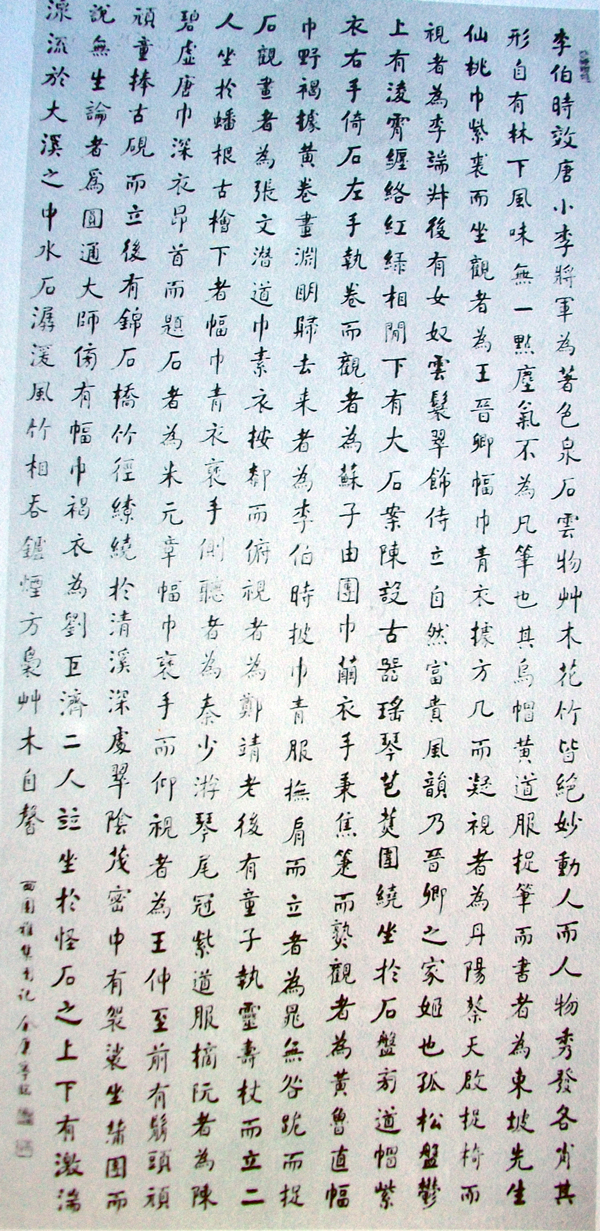 李伯時效唐小李將軍為著色泉石雲物艸木花竹皆絕妙動人而人物秀發各肖其
形自有林下風味無一點塵氣不為凡筆也其烏帽黃道服捉筆而書者為東坡先生
仙桃巾紫裘而坐觀者為王晉卿幅巾青衣據方几而凝視者為丹陽蔡天啟捉椅而
視者為李端叔後有女奴雲鬟翠飾侍立自然富貴風韻乃晉卿之家姬也孤松盤鬱
上有淩霄纏絡紅綠相閒下有大石案陳設古器瑤琴芭蕉圍繞坐於石盤旁道帽紫
衣右手倚石左手執卷而觀者為蘇子由團巾繭衣手秉焦箑而熟觀者為黃魯直幅
巾野褐據黃卷畫淵明歸去来者為李伯時披巾青服撫肩而立者為晁無咎跪而捉
石觀畫者為張文潛道巾素衣按郄而俯視者為鄭靖老後有童子執靈壽杖而立二
人坐於蟠根古檜下者幅巾青衣袤手側聽者為秦少游琴尾冠紫道服摘阮者為陳
碧虛唐巾深衣昂首而題石者為米元章幅巾袤手而仰視者為王仲至前有鬅頭頑
頑童捧古硯而立後有錦石橋竹徑繚繞於清溪深處翠陰茂密中有袈裟坐蒲團而
說無生論者為圓通大師傍有幅巾褐衣為劉巨濟二人竝坐於怪石之上下有激湍
淙流於大溪之中水石潺湲風竹相吞鑪煙方裊艸木自馨
西園雅集圖記